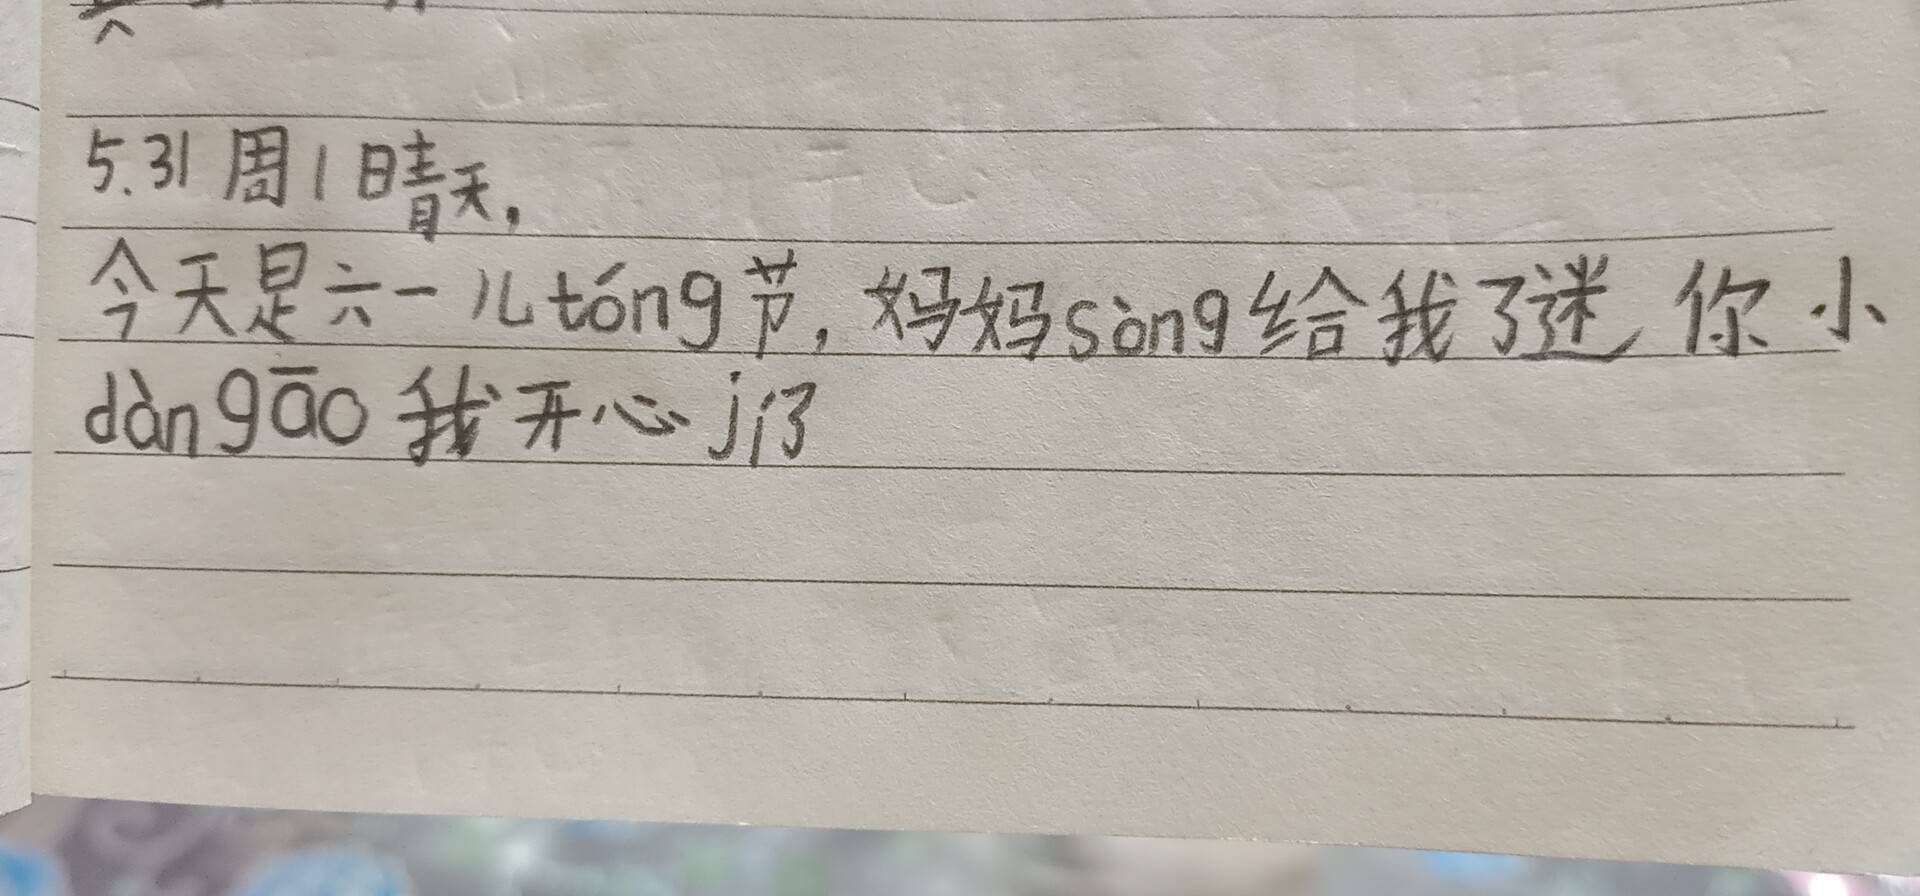 5.31 周1 晴天,
今天是六一儿tóng节,妈妈sòng给我了迷你小
dàngāo我开心jí了